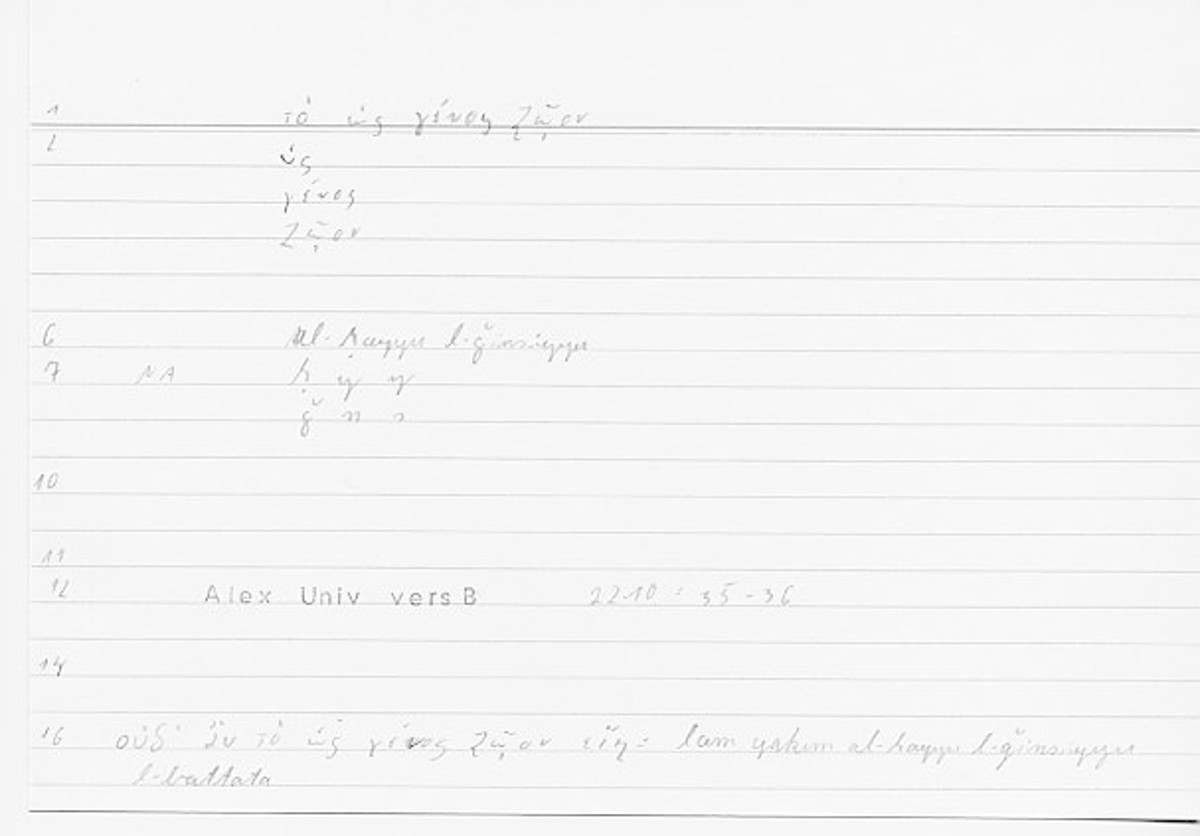 1 τὸ ὡς γένος ζῷον
2 ὡς
γένος
ζῷον
6 al-ḥayyu l-ǧinsiyyu
7 NA ḥ y y
ǧ n s
10
11
12 Alex Univ vers B 22.10 : 35-36
14
16 οὐδ' ἂν τὸ ὡς γένος ζῷον εἴη: lam yakun al-ḥayyu l-ǧinsiyyu
l-battata